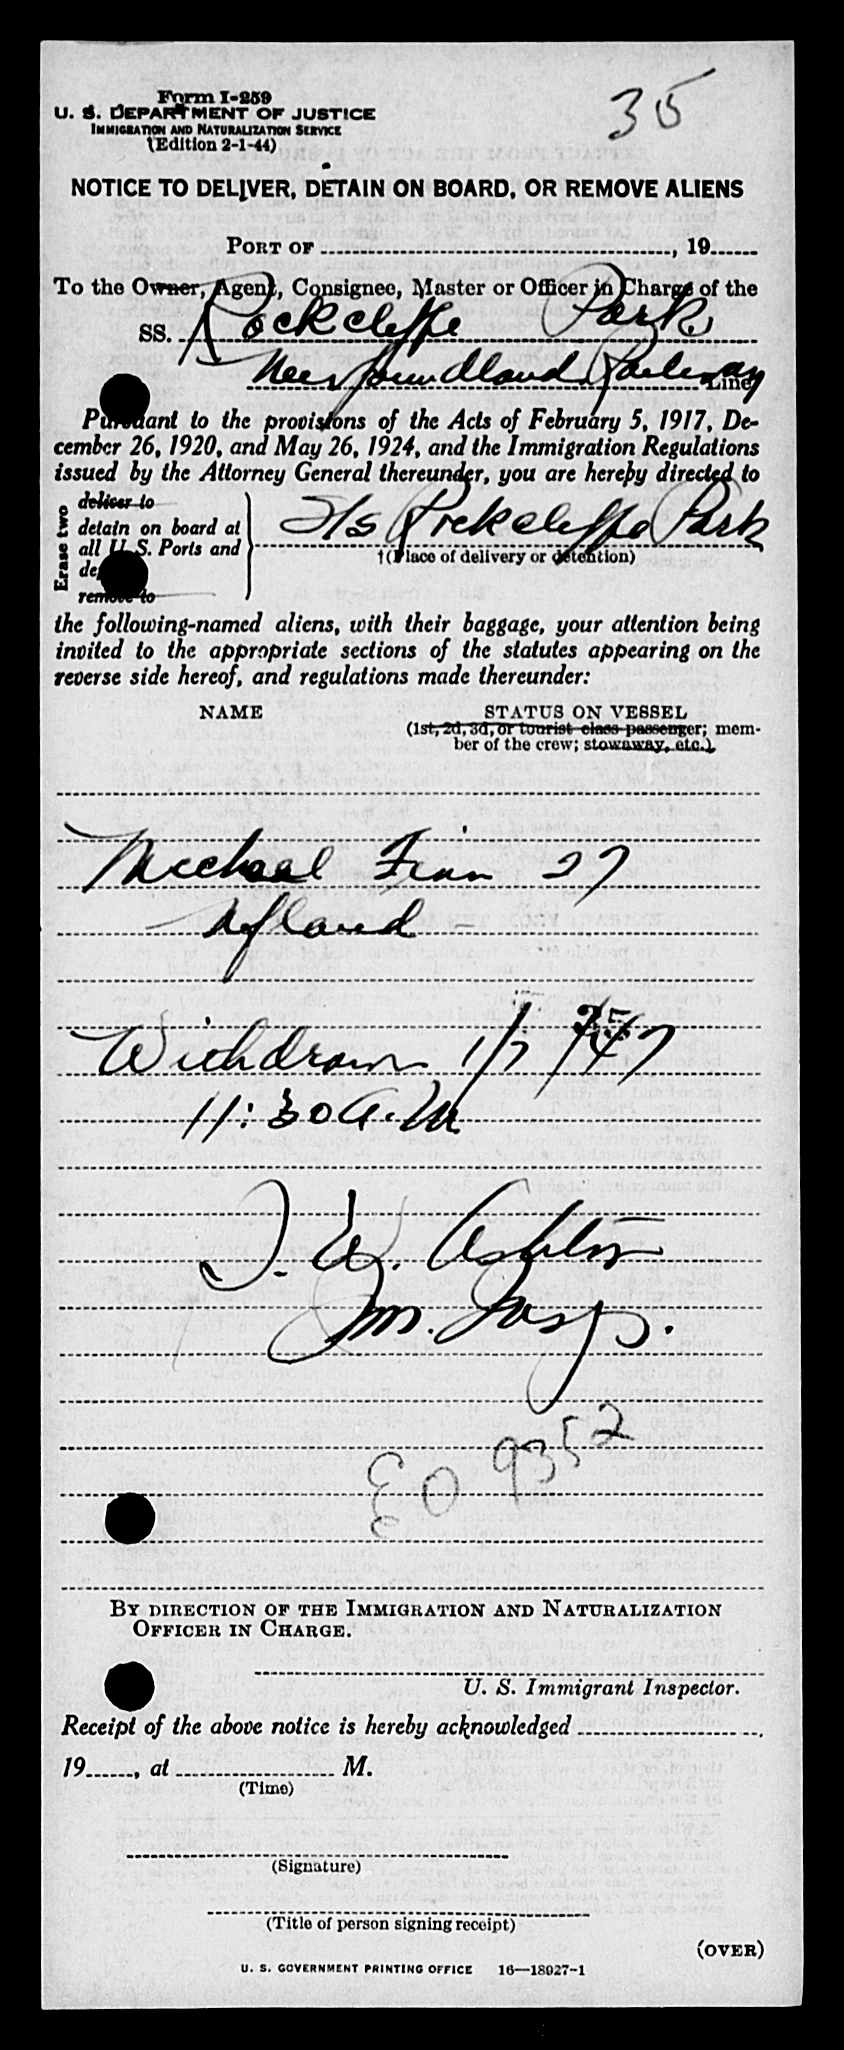 35
Form I-259
U. S. DEPARTMENT OF JUSTICE
IMMIGRATION AND NATURALIZATION SERVICE
(Edition 2-1-44)
NOTICE TO DELIVER, DETAIN ON BOARD, OR REMOVE ALIENS
PORT OF , 19
To the Owner, Agent, Consignee, Master or Officer in Charge of the
SS. Rockcliffe Park
Newfoundland Railway Line
Pursuant to the provisions of the Acts of February 5, 1917, De-
cember 26, 1920, and May 26, 1924, and the Immigration Regulations
issued by the Attorney General thereunder, you are hereby directed to
Erase two
deliver to
detain on board at
all U. S. Ports and
remove to
S/s Rockcliffe Park
†(Place of delivery or detention)
the following-named aliens, with their baggage, your attention being
invited to the appropriate sections of the statutes appearing on the
reverse side hereof, and regulations made thereunder:
NAME STATUS ON VESSEL
(1st, 2d, 3d, or tourist class passenger; mem-
ber of the crew; stowaway, etc.)
Michael Finn 27
Nfland
Withdrawn 1/7/47
11:30 A.M.
Ashton
Im. Insp.
EO 9352
BY DIRECTION OF THE IMMIGRATION AND NATURALIZATION
OFFICER IN CHARGE.
U. S. Immigrant Inspector.
Receipt of the above notice is hereby acknowledged
19 , at M.
(Time)
(Signature)
(Title of person signing receipt)
(OVER)
U. S. GOVERNMENT PRINTING OFFICE 16—18027-1